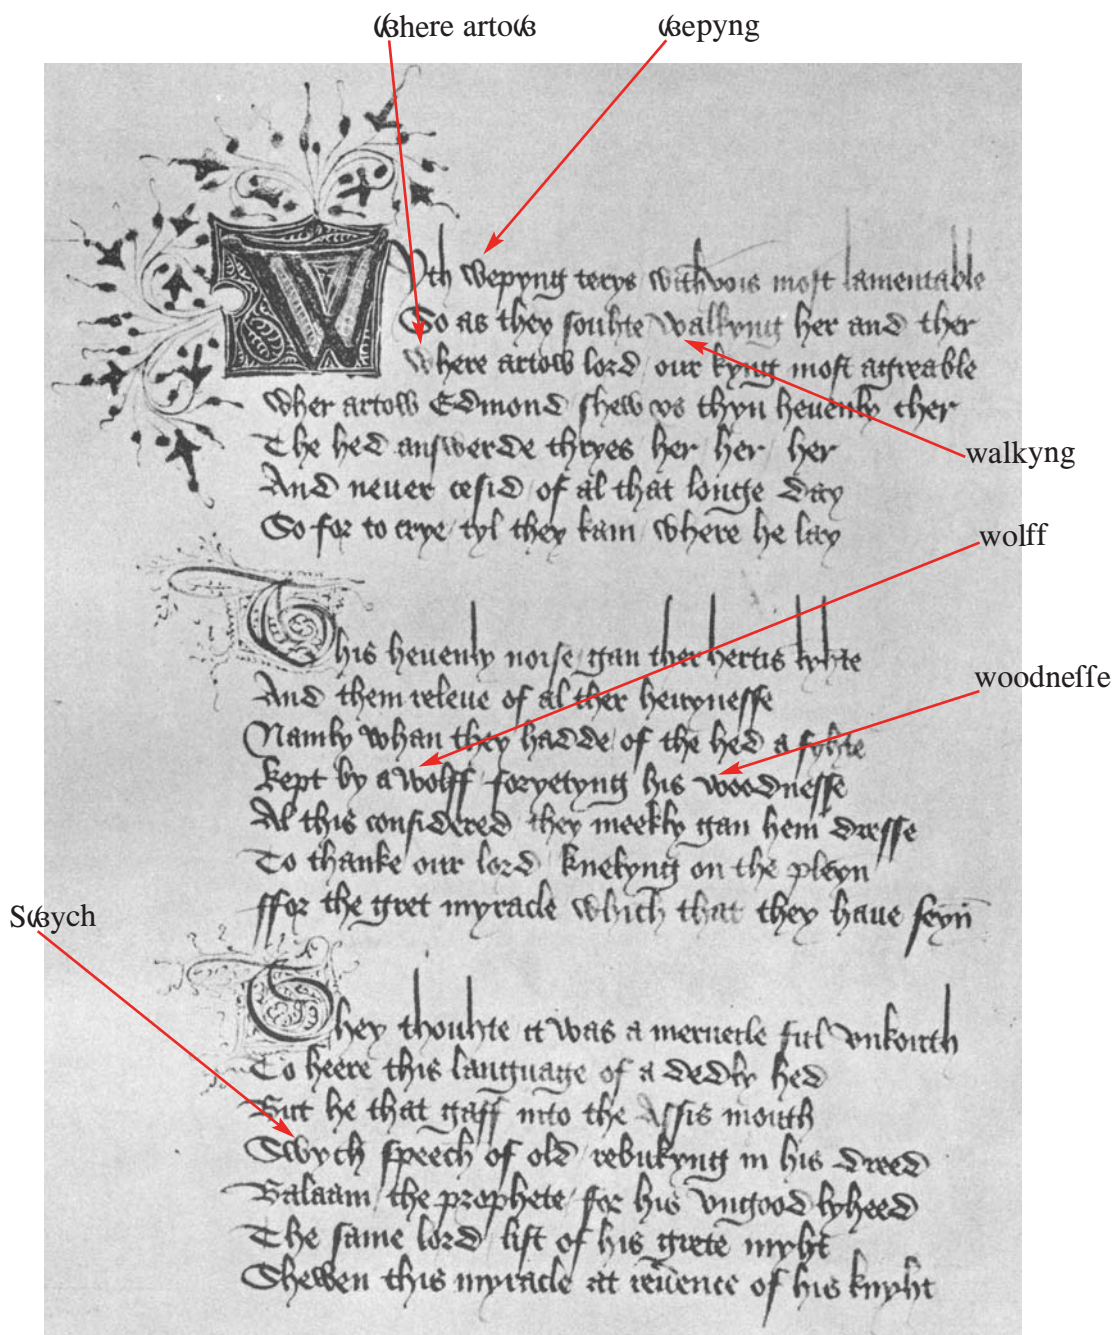 Ꟃhere artoꟃ
ꟃepyng
Wyth wepyng terys with vois moſt lamentable
So as they ſouhte / walkyng her and ther
Where artow lord / our kyng moſt agreable
Wher artow Edmond / ſhew vs thyn hevenly cher
The hed anſwerde thryes her / her / her
walkyng
And never ceſid / of al that longe day
So for to crye / tyl they kam / where he lay
wolff
This hevenly noiſe / gan ther hertis lyhte
And them releve of al ther hevyneſſe
woodneſſe
Namly whan they hadde / of the hed a ſyhte
Kept by a wolff / foryetyng his woodneſſe
Al this conſidered / they meekly gan hem dreſſe
To thanke our lord / knelyng on the pleyn
ffor the gret myracle which that they have ſeyn
Sꟃych
They thouhte it was a merveile ful vnkouth
To heere this language of a dedly hed
But he that gaff into the Aſſis mouth
Swych ſpeech of old / rebukyng in his dreed
Balaam / the prophete / for his vngoodlyheed
The ſame lord liſt of his grete myht
Shewen this myracle at revence of his knyht